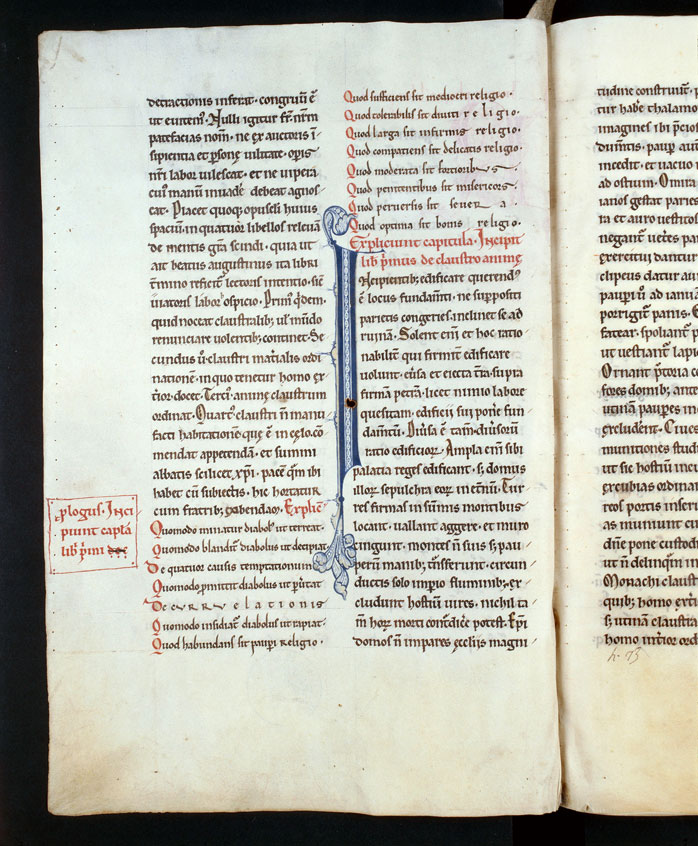 detractionis inferat. congruū ē
ut euitem᷒. Nulli igitur fr̄ n̄rm
patefacias nom̄. ne ex auctoris ī
sipientia et p̱sonę uilitate. opis
n̄ri labor uilescat. et ne uipera
cui᷒ manū inuade debeat agnos
cat. Placet quoq; opusc̄li huius
spaciū in quatuor libellos releuā
de mentis gr̄a scindi. quia ut
ait beatus augustinus ita libri
t̄mino reficit̄ lectoris intentio. sic̄
uiatoris labor ospicio. Prim᷒ q̇dem.
quid noceat claustralib; ul᷒ m̄do
renunciare uolentib; continet. Se
cundus ū claustri mat̄ialis ordi
natione. in quo tenetur homo ex
t̄ior. docet. Terci᷒ animę claustrum
ordinat. Quart᷒ claustri n̄ manu
facti habitatione quę ē in cęlo cō
mendat appetendā. et summi
abbatis scilicet xp̄i. pacē qm̄ ibi
habet cū subiectis. hic hortatur
cum fratrib; habendam. Explic̄
p̱logus. Inci
piunt capl̄a
lib̄ p̍mi
Quomodo minatur diabol᷒ ut terreat.
Quomodo blandit̄ diabolus ut decipiat
De quatuor causis temptationum
Quomodo p̱mittit diabolus ut
De
Quomodo insidiat̄ diabolus ut rapiat.
Quod habundans sit paup̱i religio.
Quod sufficiens sit mediocri religio.
Quod tolerabilis sit diuiti religio.
Quod larga sit infirmis religio.
Quod compatiens sit delicatis religio.
Quod moderata sit fortioribus
Quod penitentibus sit misericors
Quod peruersis sit seuera.
Quod optima sit bonis religio.
Expliciunt capitula. Incipit
lib̄ p̍mus de claustro animę
Incipientib; edificare querend᷒
ē locus fundam̄ti. ne suppositi
parietis congeries. inclinet se ad
ruinā. Solent eni᷒ et hoc ratio
nabilit̄ qui firmit̄ edificare
uolunt. effosa et eiecta t̄ra. supra
firmā petrā. licet nimio labore
quesitam. edificii sui pone fun
dam̄tū. Diuersa ē tam̄ diuersorū
ratio edificior. Ampla eni᷒ sibi
palatia reges edificant. s; domus
illor. sepulchra eor in et̄nū. Tur
res firmas in summis montibus
locant. uallant aggere. et muro
cingunt. montes n̄ suis s; pau
perū manib; t̄nsferunt. circun
ductis solo imp̱io fluminib;. ex
cludunt hostiū uires. nichil ta
m̄ hor᷒ morti cont̄dice potest. Ep̄i
domos n̄ impares ęccl̄iis magni
tudine construunt᷒
tur habē thalamo
imagines ibi p̄cios
incedit. et uacuo
ad ostium. Omitta
iarios gestat parie
ra et auro uestitos
negant᷒ uetes
exercitui
clipeus datur
pauperū ad ianuā
porrigit̄ panis.
fatear. spoliant̄ p
ut uestiant̄ lapi
Ornant p̄toria
fores domib;
utinā paup̱es
excludent. Ciues
munitiones
ut sic hostiū
excubias ordinan
reos portis inseri
as muniunt
diē pone custodi
ut n̄ delinq̇m
Monachi claust
quib; homo ext̄i
s; utinā claustra
homo int̄ior